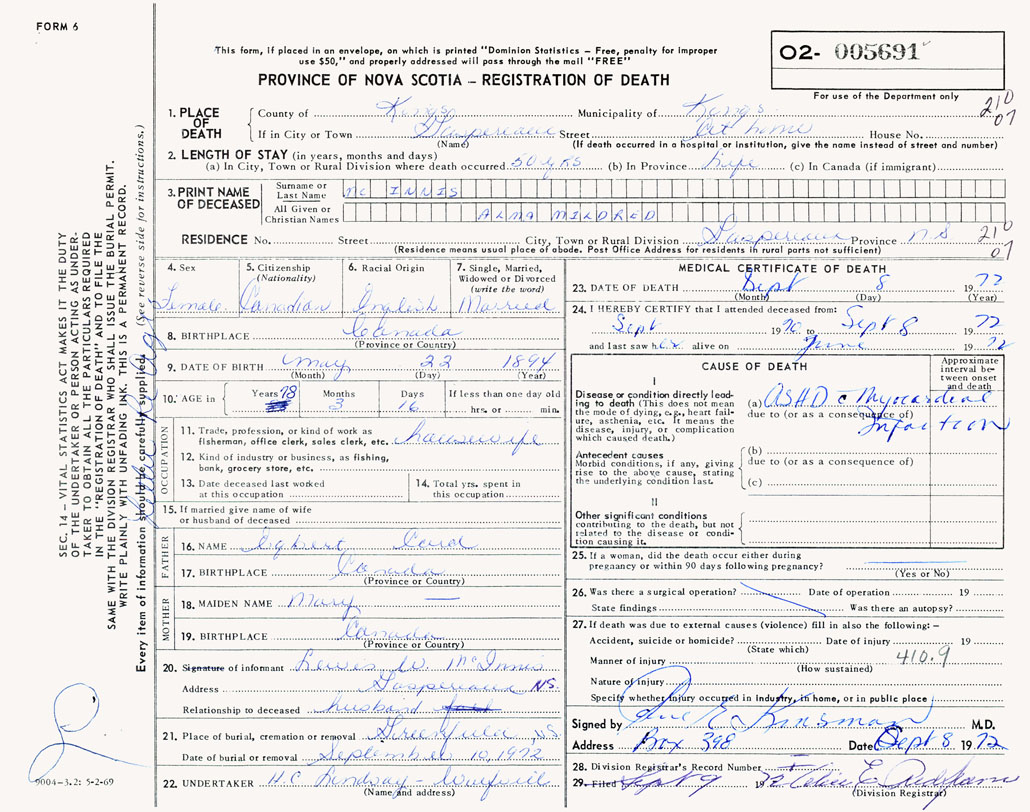 FORM 6
This form, if placed in an envelope, on which is printed "Dominion Statistics – Free, penalty for improper
use $50," and properly addressed will pass through the mail "FREE"
PROVINCE OF NOVA SCOTIA – REGISTRATION OF DEATH
O2- 005691
For use of the Department only
210
07
1. PLACE OF DEATH
County of Kings Municipality of Kings
If in City or Town Gaspereaux Street At home House No.
(Name) (If death occurred in a hospital or institution, give the name instead of street and number)
2. LENGTH OF STAY (in years, months and days)
(a) In City, Town or Rural Division where death occurred 50 yrs (b) In Province Life (c) In Canada (if immigrant)
3. PRINT NAME OF DECEASED
Surname or Last Name Mc INNIS
All Given or Christian Names ALMA MILDRED
RESIDENCE No. Street City, Town or Rural Division Gaspereaux Province N.S
(Residence means usual place of abode. Post Office Address for residents in rural parts not sufficient)
210
07
4. Sex
Female
5. Citizenship (Nationality)
Canadian
6. Racial Origin
English
7. Single, Married, Widowed or Divorced (write the word)
Married
8. BIRTHPLACE Canada
(Province or Country)
9. DATE OF BIRTH May 22 1894
(Month) (Day) (Year)
10. AGE in Years 78 Months 3 Days 16 If less than one day old
hrs. or min.
OCCUPATION
11. Trade, profession or kind of work as
fisherman, office clerk, sales clerk, etc. housewife
12. Kind of industry or business, as fishing,
bank, grocery store, etc.
13. Date deceased last worked
at this occupation
14. Total yrs. spent in
this occupation
15. If married give name of wife
or husband of deceased
FATHER
16. NAME Egbert Coid
17. BIRTHPLACE Canada
(Province or Country)
MOTHER
18. MAIDEN NAME Mary —
19. BIRTHPLACE Canada
(Province or Country)
20. Signature of informant Lewis W. McInnis
Address Gaspereaux NS.
Relationship to deceased husband
21. Place of burial, cremation or removal Greenfield N.S
Date of burial or removal September 10, 1972
22. UNDERTAKER H.C Lindsay – Wolfville
(Name and address)
MEDICAL CERTIFICATE OF DEATH
23. DATE OF DEATH Sept 8 1972
(Month) (Day) (Year)
24. I HEREBY CERTIFY that I attended deceased from:
Sept 1970 to Sept 8 1972
and last saw her alive on June 1972
CAUSE OF DEATH
Approximate interval between onset and death
I
Disease or condition directly leading to death (This does not mean the mode of dying, e.g., heart failure, asthenia, etc. It means the disease, injury, or complication which caused death.)
(a) ASHD c Myocardial
due to (or as a consequence of)
Infarction
Antecedent causes
Morbid conditions, if any, giving rise to the above cause, stating the underlying condition last.
(b)
due to (or as a consequence of)
(c)
II
Other significant conditions
contributing to the death, but not related to the disease or condition causing it.
25. If a woman, did the death occur either during
pregnancy or within 90 days following pregnancy?
(Yes or No)
26. Was there a surgical operation? Date of operation 19
State findings Was there an autopsy?
27. If death was due to external causes (violence) fill in also the following: –
Accident, suicide or homicide? Date of injury 19
(State which)
Manner of injury 410.9
(How sustained)
Nature of injury
Specify whether injury occurred in industry, in home, or in public place
Signed by E. Kinsman M.D.
Address Box 398 Date Sept 8 1972
28. Division Registrar's Record Number
29. Filed Sept 9 1972
(Division Registrar)
SEC. 14 – VITAL STATISTICS ACT MAKES IT THE DUTY
OF THE UNDERTAKER OR PERSON ACTING AS UNDER-
TAKER TO OBTAIN ALL THE PARTICULARS REQUIRED
IN THE "REGISTRATION OF DEATH" AND TO FILE THE
SAME WITH THE DIVISION REGISTRAR WHO SHALL ISSUE THE BURIAL PERMIT.
WRITE PLAINLY WITH UNFADING INK. THIS IS A PERMANENT RECORD.
Every item of information should be carefully supplied. (See reverse side for instructions.)
9004-3.2: 5-2-69